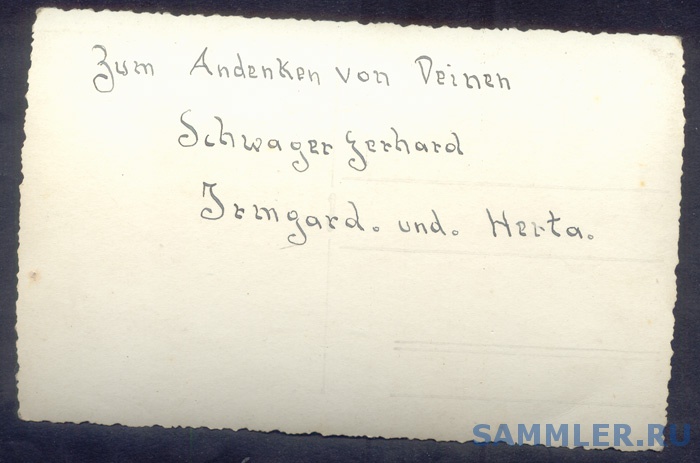 Zum Andenken von Deinen
Schwager Gerhard
Irmgard. und. Herta.
SAMMLER.RU